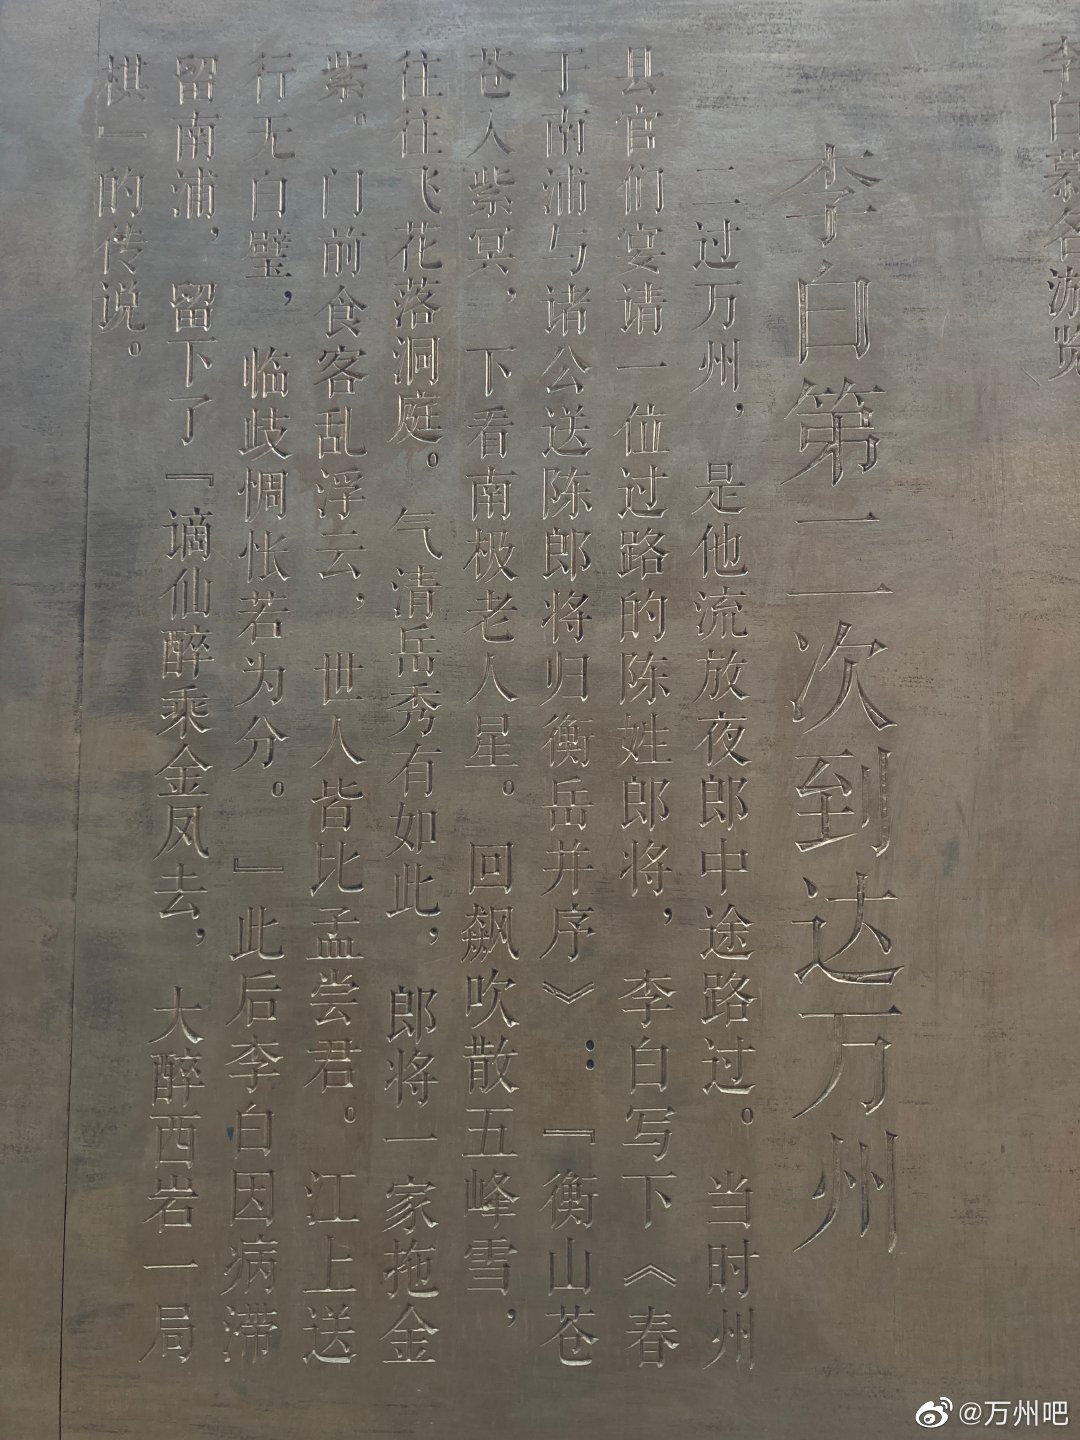 李白慕名游览
李白第二次到达万州
二过万州，是他流放夜郎中途路过。当时州
县官们宴请一位过路的陈姓郎将，李白写下《春
于南浦与诸公送陈郎将归衡岳并序》：『衡山苍
苍入紫冥，下看南极老人星。回飙吹散五峰雪，
往往飞花落洞庭。气清岳秀有如此，郎将一家拖金
紫。门前食客乱浮云，世人皆比孟尝君。江上送
行无白璧，临歧惆怅若为分。』此后李白因病滞
留南浦，留下了『谪仙醉乘金凤去，大醉西岩一局
棋』的传说。
@万州吧